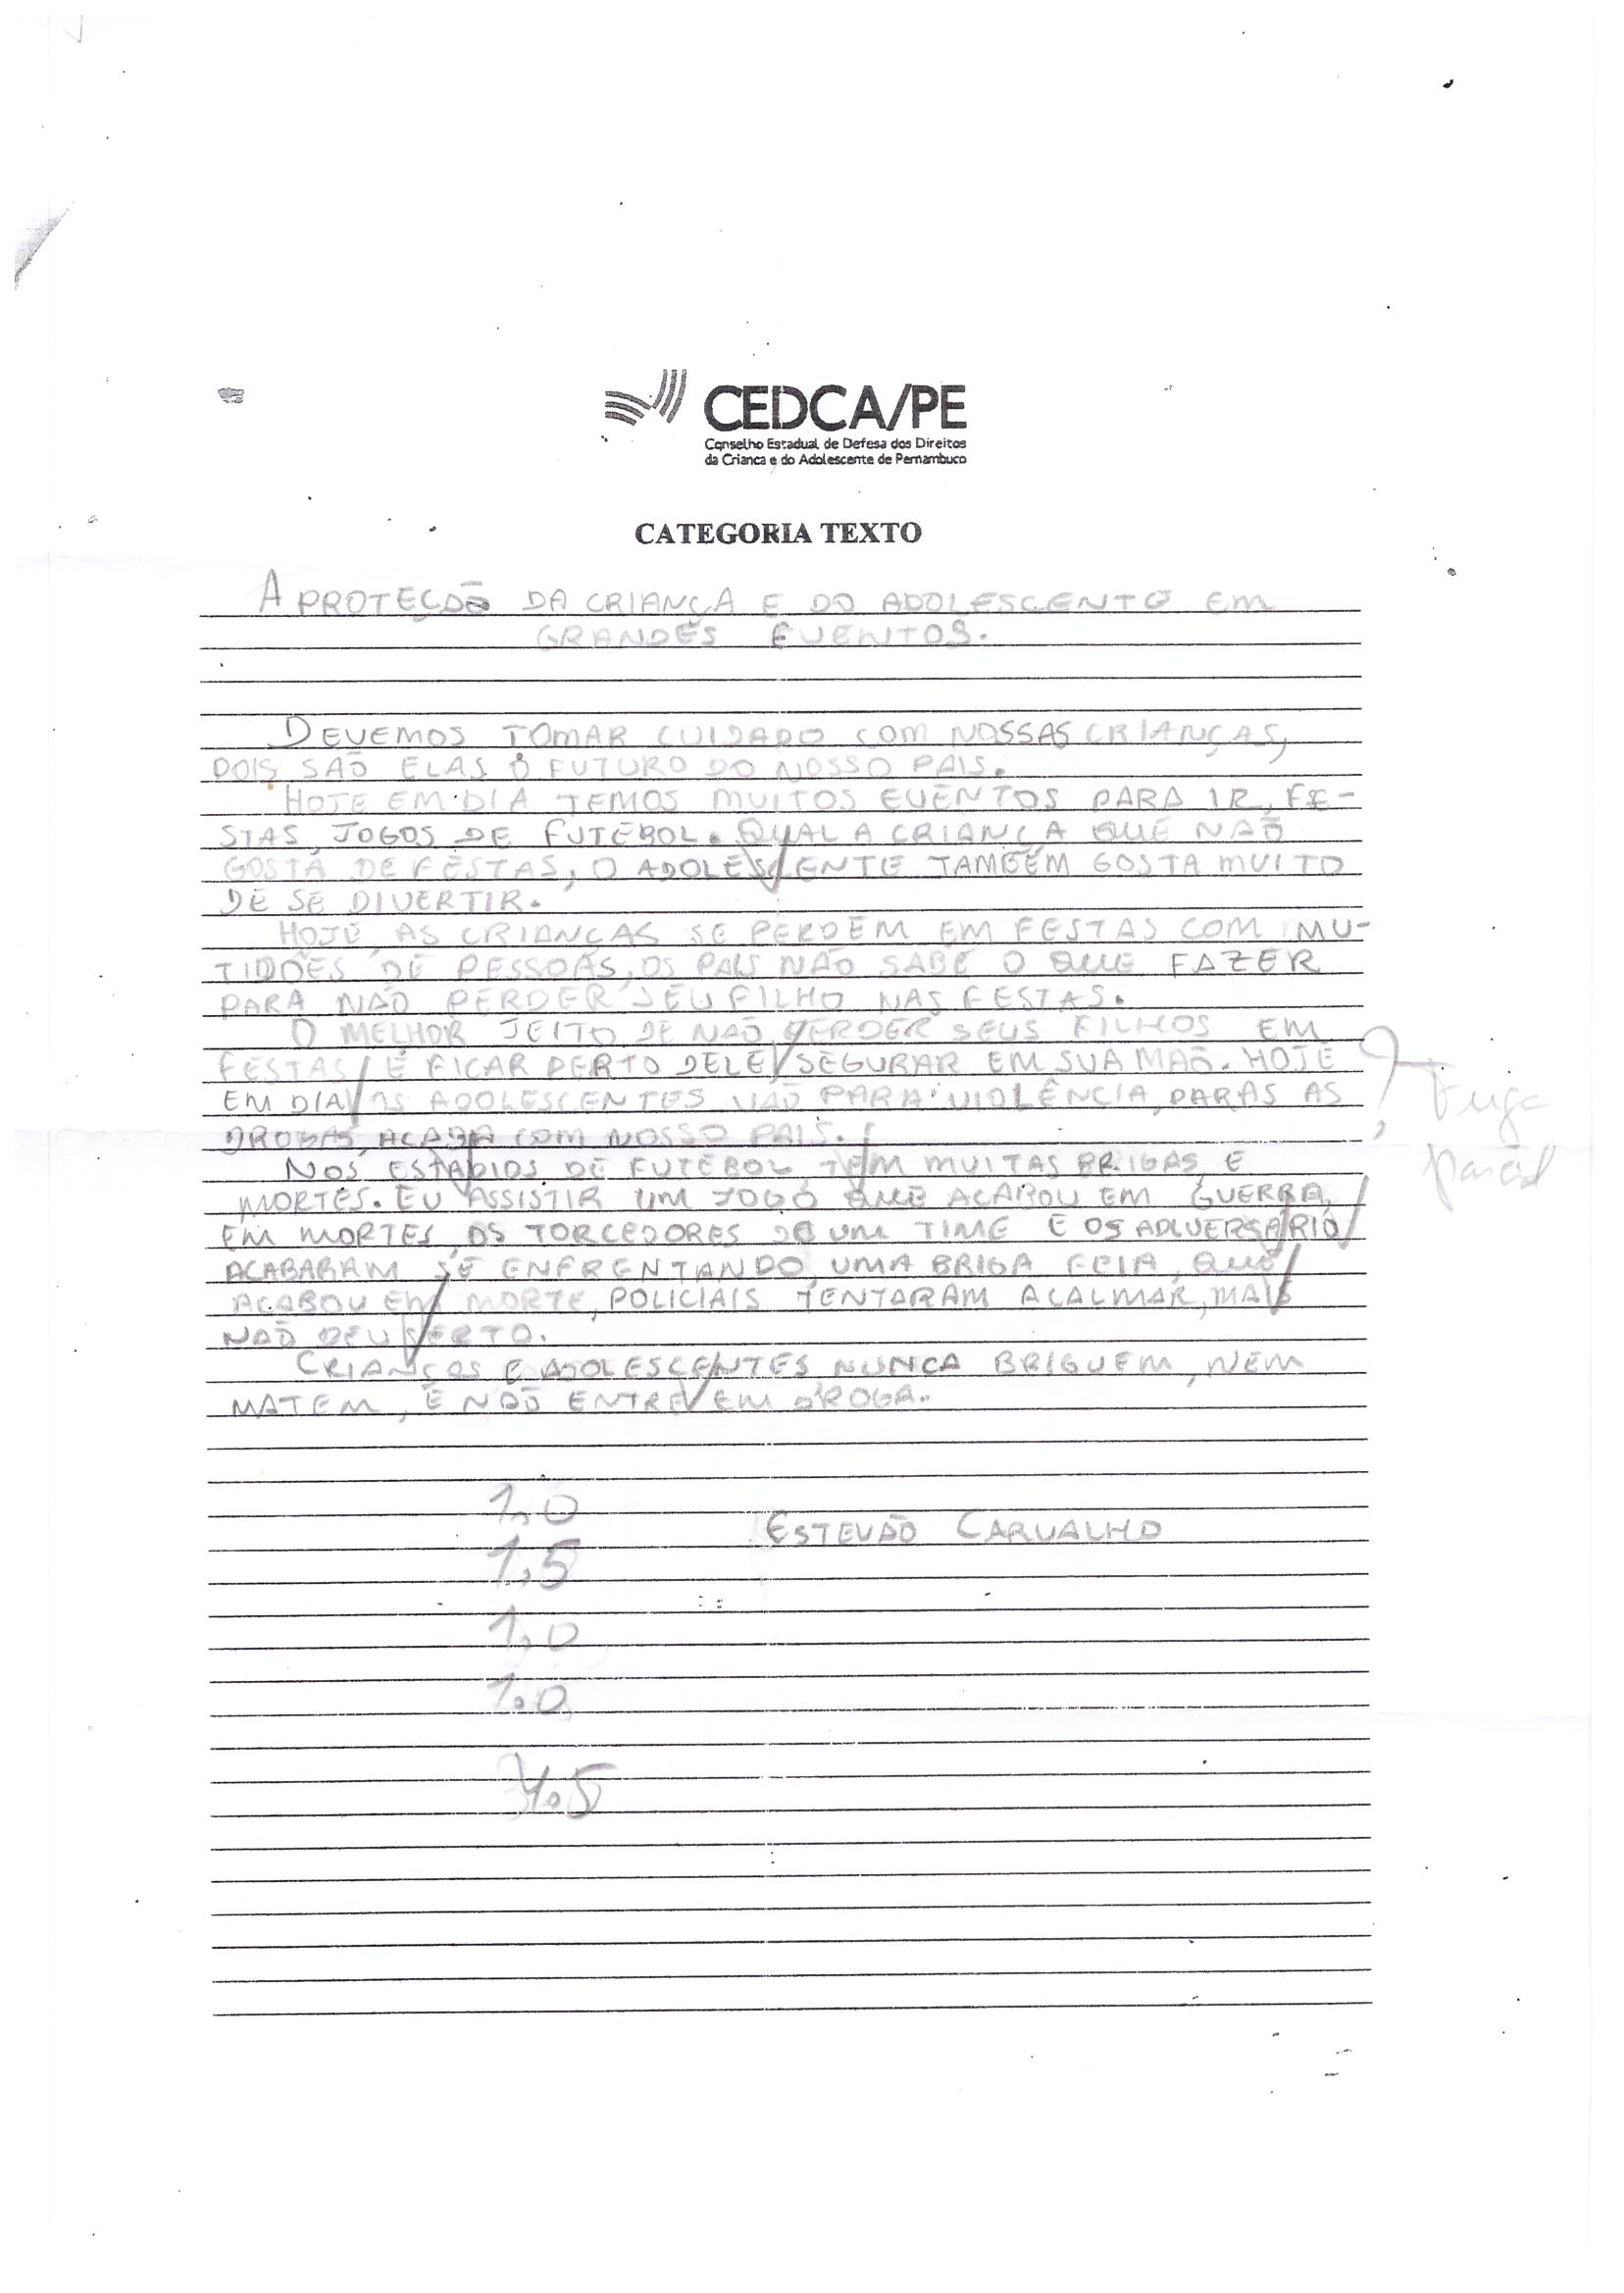 CEDCA/PE
Conselho Estadual de Defesa dos Direitos
da Crianca e do Adolescente de Pernambuco
CATEGORIA TEXTO
A PROTEÇÃO DA CRIANÇA E DO ADOLESCENTE EM
GRANDES EVENTOS.
DEVEMOS TOMAR CUIDADO COM NOSSAS CRIANÇAS,
POIS SÃO ELAS O FUTURO DO NOSSO PAIS.
HOJE EM DIA TEMOS MUITOS EVENTOS PARA IR, FE-
STAS, JOGOS DE FUTEBOL. QUAL A CRIANÇA QUE NÃO
GOSTA DE FESTAS, O ADOLESCENTE TAMBÉM GOSTA MUITO
DE SE DIVERTIR.
HOJE AS CRIANÇAS SE PERDEM EM FESTAS COM MU-
TIDÕES DE PESSOAS, OS PAIS NÃO SABE O QUE FAZER
PARA NÃO PERDER SEU FILHO NAS FESTAS.
O MELHOR JEITO DE NÃO PERDER SEUS FILHOS EM
FESTAS É FICAR PERTO DELE SEGURAR EM SUA MÃO. HOJE
EM DIA OS ADOLESCENTES VÃO PARA VIOLÊNCIA, PARAS AS
DROGAS, ACABA COM NOSSO PAIS.
NOS ESTADIOS DE FUTEBOL TEM MUITAS BRIGAS E
MORTES. EU ASSISTIR UM JOGO QUE ACABOU EM GUERRA,
EM MORTES, OS TORCEDORES DE UM TIME E OS ADVERSARIO
ACABARAM SE ENFRENTANDO, UMA BRIGA FEIA, QUE
ACABOU EM MORTE, POLICIAIS TENTARAM ACALMAR, MAIS
NÃO DEU SERTO.
CRIANÇAS E ADOLESCENTES NUNCA BRIGUEM, NEM
MATEM, E NÃO ENTRE EM DROGA.
Fuga
parcial
1,0
ESTEVÃO CARVALHO
1,5
1,0
1,0
4,5